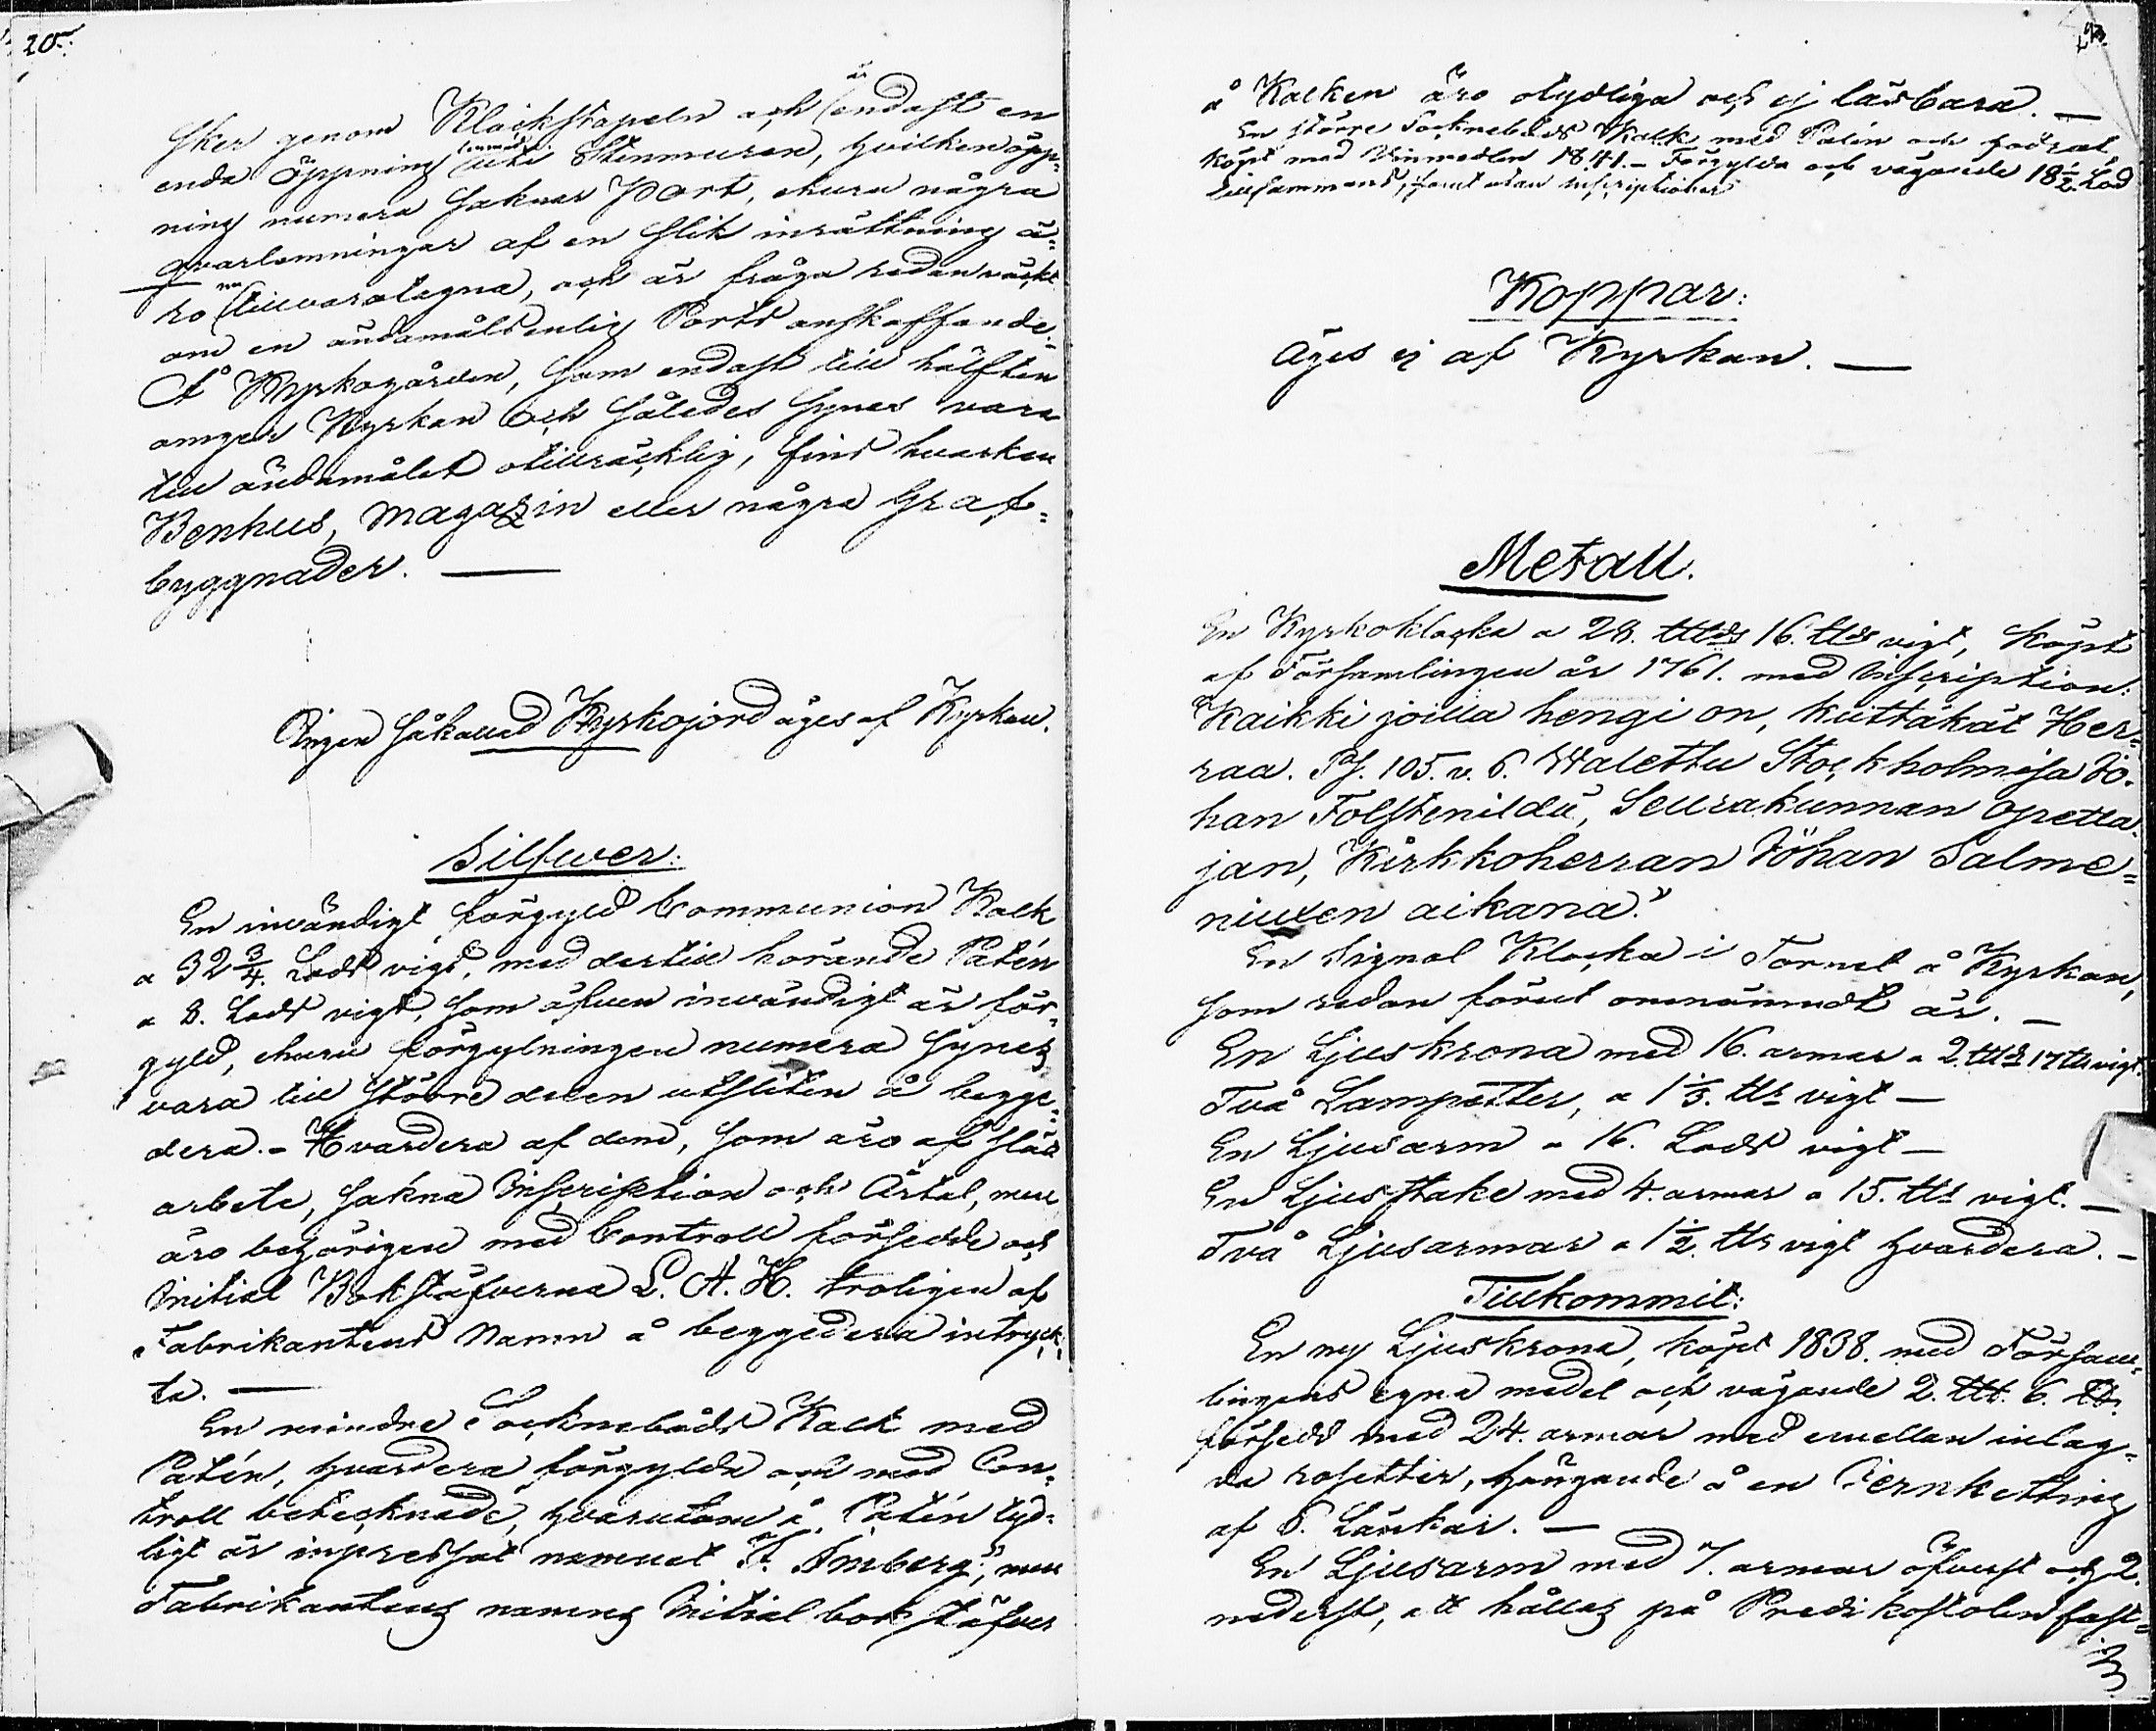 20.
sker genom Klockstapeln och är endast en
enda öppning uti Stenmuren, hvilken öpp-
ning numera saknar Port, ehuru några
qvarlemningar af en slik inrättning ä-
ro tillvaratagna, och är fråga redan väckt
om en ändamålsenlig Ports anskaffande.
Å Kyrkogården, som endast till hälften
omger Kyrkan och således synes vara
till ändamålet otillräcklig, fins hvarken
Benhus, Magazin eller några Graf-
byggnader. —
Ingen såkallad Kyrkojord äges af Kyrkan.
Silfwer:
En invändigt förgyld Communion Kalk
a 32 3/4. Lods vigt, med dertill hörande Patén
a 8. Lods vigt, som äfven invändigt är för-
gyld, ehuru förgylningen numera synes
vara till större delen utsliten å begge-
dera. - Hvardera af dem, som äro af slät
arbete, sakna Inscription och Årtal, men
äro behörigen med Controll försedde och
Initial Bokstäfverna L. A. H. troligen af
Fabrikantens Namn å beggedera intryck-
ta. —
En mindre Socknebåds Kalk med
Patén, hvardera förgylda och med Con-
troll betecknade, hvarutom å Patén tyd-
ligt är inpressat namnet F. Imberg", men
Fabrikantens namns Initial bokstäfver
å Kalken äro otydliga och ej läsbara. —
En större Socknebåds Kalk med Patén och fodral
köpt med Vinmedlen 1841. - Förgylda och vägande 18 1/2 Lod
tillsammans, samt utan inscriptioner
Koppar:
Äges ej af Kyrkan. —
Metall.
En Kyrkoklocka a 28. ℔ds 16. ℔ds vigt, köpt
af Församlingen år 1761. med Inscription:
"Kaikki joilla hengi on, kiittäkät Her-
raa. Ps. 105. v. 6. Walettu Stockholmisa Jo-
han Folstenildä, Seurakunnan opetta-
jan, Kirkkoherran Johan Salme-
niuxen aikana."
En Signal Klocka i Tornet å Kyrkan,
som redan förut omnämndt är. —
En Ljuskrona med 16. armar a 2. L℔s 17 ℔s vigt.
Två Lampetter, a 1 1/3. ℔s vigt —
En Ljusarm a 16. Lods vigt —
En Ljusstake med 4. armar a 15. ℔s vigt. —
Två Ljusarmar a 1 1/2. ℔s vigt hvardera. —
Tillkommit:
En ny Ljuskrona, köpt 1838. med Försam-
lingens egna medel och vägande 2. L℔. 6. ℔.
försedd med 24. armar med emellan inlag-
da rosetter, hängande å en Jernketting
af 6. Länkar. —
En Ljusarm med 7. armar öfverst och 2.
nederst, att hållas på Predikstolen fast-